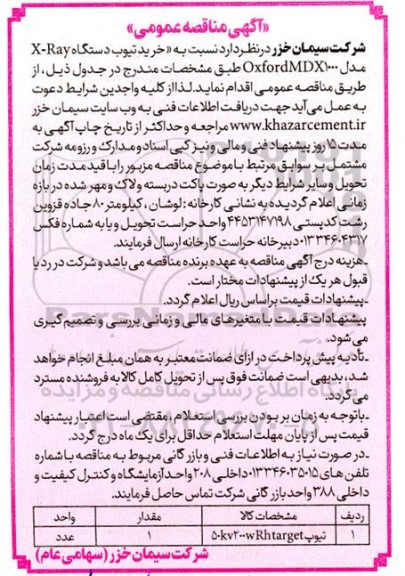 «آگهی مناقصه عمومی»
شرکت سیمان خزر در نظر دارد نسبت به «خرید تیوب دستگاه X-Ray
مدل OxfordMDX1000 طبق مشخصات مندرج در جدول ذیل، از
طریق مناقصه عمومی اقدام نماید. لذا از کلیه واجدین شرایط دعوت
به عمل می آید جهت دریافت اطلاعات فنی به وب سایت سیمان خزر
www.khazarcement.ir مراجعه و حداکثر از تاریخ چاپ آگهی به
مدت ۱۵ روز پیشنهاد فنی و مالی و نیز کپی اسناد و مدارک و رزومه شرکت
مشتمل بر سوابق مرتبط با موضوع مناقصه مزبور را با قید مدت زمان
تحویل و سایر شرایط دیگر به صورت پاکت دربسته و لاک و مهر شده در بازه
زمانی اعلام گردیده به نشانی کارخانه: لوشان، کیلومتر ۸۰ جاده قزوین
رشت کدپستی ۴۴۵۳۱۴۷۱۹۸ واحد حراست تحویل و یا به شماره فکس
۰۱۳۳۴۶۰۴۳۱۷ دبیرخانه حراست کارخانه ارسال فرمایند.
ـ هزینه درج آگهی مناقصه به عهده برنده مناقصه می باشد و شرکت در رد یا
قبول هر یک از پیشنهادات مختار است.
ـ پیشنهادات قیمت بر اساس ریال اعلام گردد.
پیشنهادات قیمت با متغیرهای مالی و زمانی بررسی و تصمیم گیری
می شود.
ـ تأدیه پیش پرداخت در ازای ضمانت معتبر به همان مبلغ انجام خواهد
شد، بدیهی است ضمانت فوق پس از تحویل کامل کالا به فروشنده مسترد
می گردد.
ـ با توجه به زمان بر بودن بررسی استعلام، مقتضی است اعتبار پیشنهاد
قیمت پس از پایان مهلت استعلام حداقل برای یک ماه درج گردد.
ـ در صورت نیاز به اطلاعات فنی و بازرگانی مربوط به مناقصه با شماره
تلفن های ۱۵-۰۱۳۳۴۶۰۳۵ داخلی ۲۰۸ واحد آزمایشگاه و کنترل کیفیت و
داخلی ۳۸۸ واحد بازرگانی شرکت تماس حاصل فرمایند.
ردیف مشخصات کالا مقدار واحد
۱ تیوب ۵۰kv۲۰۰wRhtarget ۱ عدد
شرکت سیمان خزر (سهامی عام)